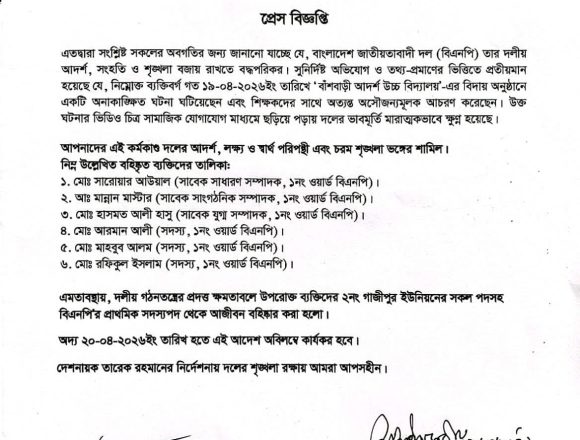 প্রেস বিজ্ঞপ্তি
এতদ্বারা সংশ্লিষ্ট সকলের অবগতির জন্য জানানো যাচ্ছে যে, বাংলাদেশ জাতীয়তাবাদী দল (বিএনপি) তার দলীয়
আদর্শ, সংহতি ও শৃঙ্খলা বজায় রাখতে বদ্ধপরিকর। সুনির্দিষ্ট অভিযোগ ও তথ্য-প্রমাণের ভিত্তিতে প্রতীয়মান
হয়েছে যে, নিম্নোক্ত ব্যক্তিবর্গ গত ১৯-০৪-২০২৬ইং তারিখে 'বাঁশবাড়ী আদর্শ উচ্চ বিদ্যালয়'-এর বিদায় অনুষ্ঠানে
একটি অনাকাঙ্ক্ষিত ঘটনা ঘটিয়েছেন এবং শিক্ষকদের সাথে অত্যন্ত অসৌজন্যমূলক আচরণ করেছেন। উক্ত
ঘটনার ভিডিও চিত্র সামাজিক যোগাযোগ মাধ্যমে ছড়িয়ে পড়ায় দলের ভাবমূর্তি মারাত্মকভাবে ক্ষুন্ন হয়েছে।
আপনাদের এই কর্মকাণ্ড দলের আদর্শ, লক্ষ্য ও স্বার্থ পরিপন্থী এবং চরম শৃঙ্খলা ভঙ্গের শামিল।
নিম্ন উল্লেখিত বহিষ্কৃত ব্যক্তিদের তালিকা:
১. মোঃ সারোয়ার আউয়াল (সাবেক সাধারণ সম্পাদক, ১নং ওয়ার্ড বিএনপি)।
২. আঃ মান্নান মাস্টার (সাবেক সাংগঠনিক সম্পাদক, ১নং ওয়ার্ড বিএনপি)।
৩. মোঃ হাসমত আলী হাসু (সাবেক যুগ্ম সম্পাদক, ১নং ওয়ার্ড বিএনপি)।
৪. মোঃ আরমান আলী (সদস্য, ১নং ওয়ার্ড বিএনপি)।
৫. মোঃ মাহবুব আলম (সদস্য, ১নং ওয়ার্ড বিএনপি)।
৬. মোঃ রফিকুল ইসলাম (সদস্য, ১নং ওয়ার্ড বিএনপি)।
এমতাবস্থায়, দলীয় গঠনতন্ত্রের প্রদত্ত ক্ষমতাবলে উপরোক্ত ব্যক্তিদের ২নং গাজীপুর ইউনিয়নের সকল পদসহ
বিএনপি'র প্রাথমিক সদস্যপদ থেকে আজীবন বহিষ্কার করা হলো।
অদ্য ২০-০৪-২০২৬ইং তারিখ হতে এই আদেশ অবিলম্বে কার্যকর হবে।
দেশনায়ক তারেক রহমানের নির্দেশনায় দলের শৃঙ্খলা রক্ষায় আমরা আপসহীন।